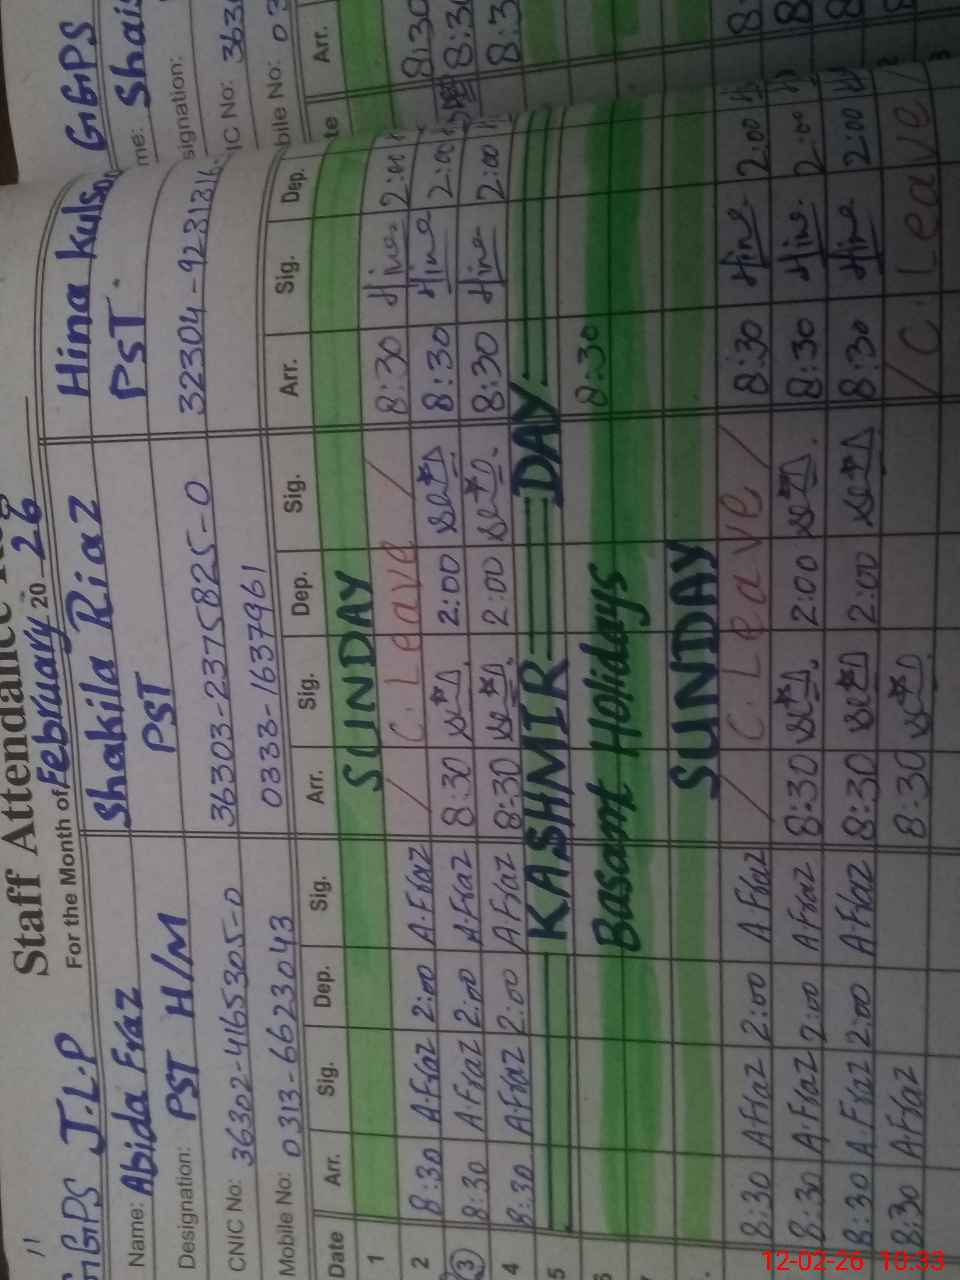 GGPS J.L.P
Staff Attendance
For the Month of February 20 26
Name: Abida Fraz Shakila Riaz Hina Kulsom
Designation: PST H/M PST PST
CNIC No: 36302-4165305-0 36303-2375825-0 32304-9231316
Mobile No: 0313-6623043 0333-1637961
Date Arr. Sig. Dep. Sig. Arr. Sig. Dep. Sig. Arr. Sig. Dep.
1 SUNDAY
2 8:30 A.Fraz 2:00 A.Fraz / C. Leave / 8:30 Hina 2:00
3 8:30 A.Fraz 2:00 A.Fraz 8:30 2:00 8:30 Hina 2:00
4 8:30 A.Fraz 2:00 A Fraz 8:30 2:00 8:30 Hina 2:00
5 KASHMIR DAY
6 Basant Holidays 8:30
SUNDAY
8:30 A Fraz 2:00 A Fraz / C. Leave / 8:30 Hina 2:00
8:30 A.Fraz 2:00 A Fraz 8:30 2:00 8:30 Hina 2:00
8:30 A.Fraz 2:00 A Fraz 8:30 2:00 8:30 Hina 2:00
8:30 A Fraz 8:30 / C. Leave /
GGPS
me: Shai
signation:
IC No: 363
bile No: 03
te Arr.
8:30
8:30
8:3
12-02-26 10:33